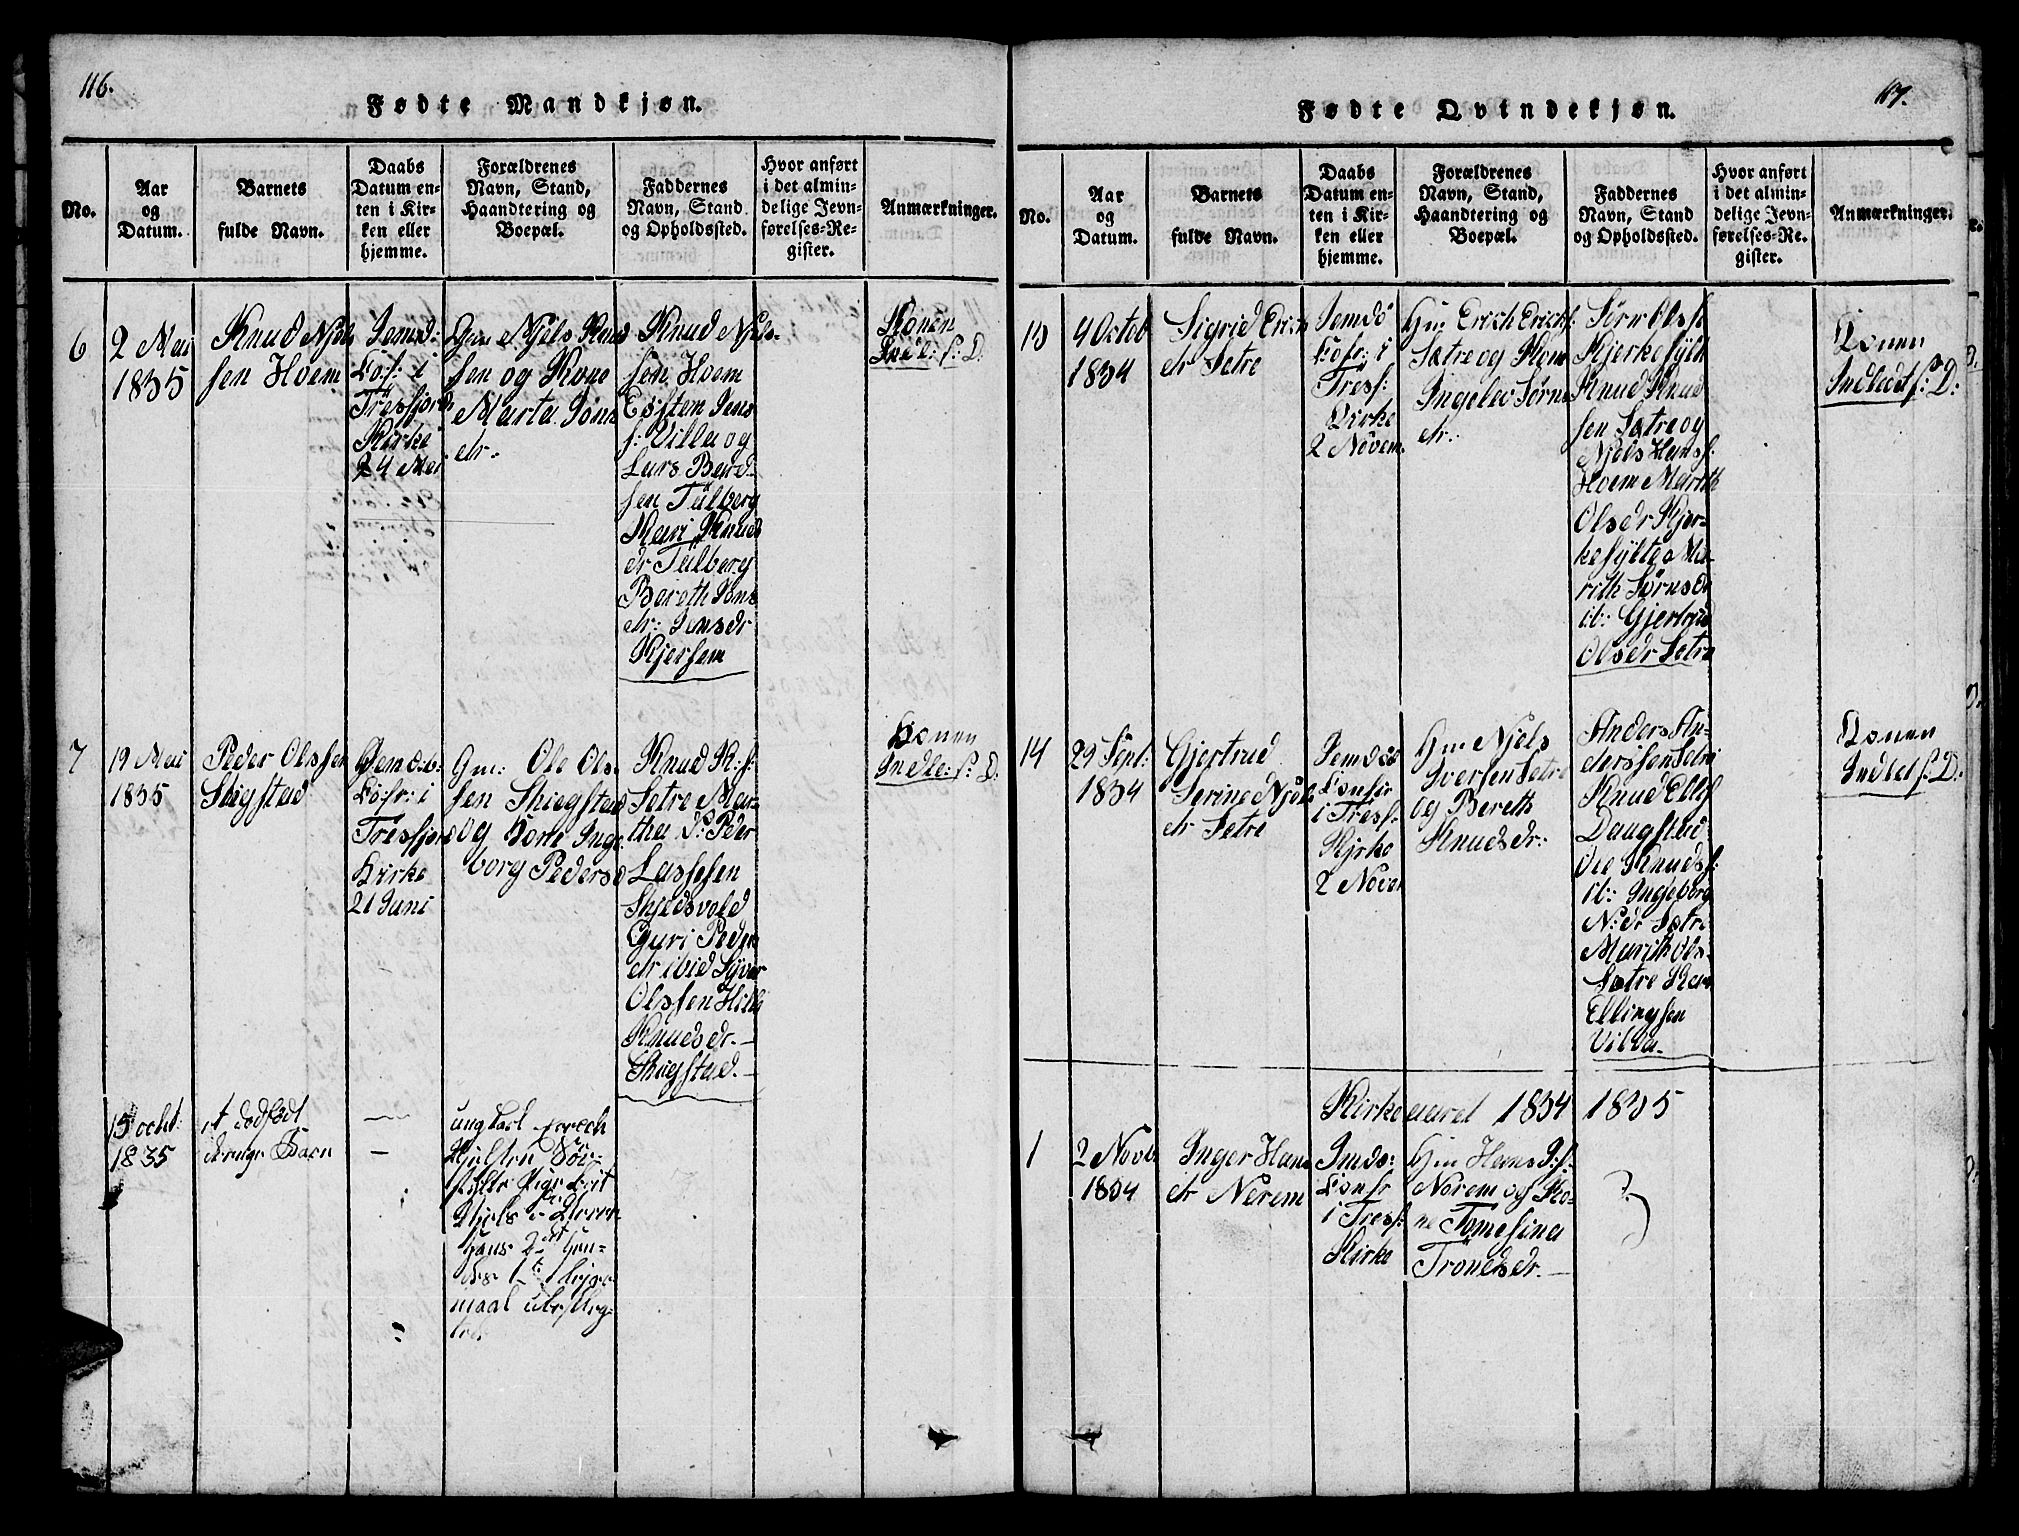 116.
Fødte Mandkjøn.
No.
Aar
og
Datum.
Barnets
fulde Navn.
Daabs
Datum en-
ten i Kir-
ken eller
hjemme.
Forældrenes
Navn, Stand,
Haandtering og
Boepæl.
Faddernes
Navn, Stand
og Opholdssted.
Hvor anført
i det almin-
delige Jevn-
førelses-Re-
gister.
Anmærkninger.
6
2 Mai
1835
Knud Njels
sen Hoem
Jemd:
Cof: i
Tresfjord
Kirke
24 Mai
Gm Njels Knud
sen og Kone
Marta Jons
dr:
Knud Njels-
sen Hoem
Esten Jens
s: Villa og
Lars Bend-
sen Tülberg
Mari Knuds
dr Tülberg
Bereth Jons
dr: Jensdr
Kjersem
Konen
Indl: f: D:
7
19 Mai
1835
Peder Olssen
Skigstad
Jemdøb:
Cofr: i
Tresfjord
Kirke
21 Juni
Gm: Ole Ols
sen Skiegstad
og Kone Inge
borg Pedersd
Knud K: s:
Sætre Mar-
tha P: Peder
Lassesen
Skjedsvold
Guri Peders
dr ibid Syver
Olssen Hilde
Knudsdr.
Skigstad.
Konen
Indle: f: D:
15 ocht:
1835
et dødfødt
Barn
ungkarl
Pige
Niels
Hans 2det
1te Leje-
maal
117.
Fødte Qvindekjøn.
No.
Aar
og
Datum.
Barnets
fulde Navn.
Daabs
Datum en-
ten i Kir-
ken eller
hjemme.
Forældrenes
Navn, Stand,
Haandtering og
Boepæl.
Faddernes
Navn, Stand
og Opholdssted.
Hvor anført
i det almin-
delige Jevn-
førelses-Re-
gister.
Anmærkninger.
13
4 Octob
1834
Sigrid Erichs
dr Sætre
Jemdö
Cofr: i
Tresf:
Kirke
2 Novem.
Gm Erich Erichs:
Sætre og Kone
Ingelev Sørns
dr:
Sørn Olss
Kjerkesylt
Knud Knud
sen Sætre og
Njels Hanss:
Hoem Marith
Olsdr Kjer-
kesyltes Ma-
rith Sørnsdr
ib: Gjertrud
Olsdr Sætre
Konen
Indledt f: D:
14
29 Sept:
1834
Gjertrud
Serine Njels
dr Sætre
Jemdöb
Confir
i Tresf:
Kjrke
2 Novem
Gm Njels
Iversen Sætre
og Bereth
Knudsdr:
Anders An-
derssen Sætre
Knud Ellefs
Daugstad
Ole Knuds s:
ib: Ingeborg
N: dr Sætre
Marith Ols
Sætre Kari
Ellingsen
Vilda.
Konen
Indlet f: D:
Kirkeaaret 1834 1835
1
2 Novb
1834
Inger Hans
dr Nerem
Jmdö:
Confr
i Tresf:
Kirke
Gm Hans P: s:
Norem og Ko-
ne Tomesina
Trondsdr.
?